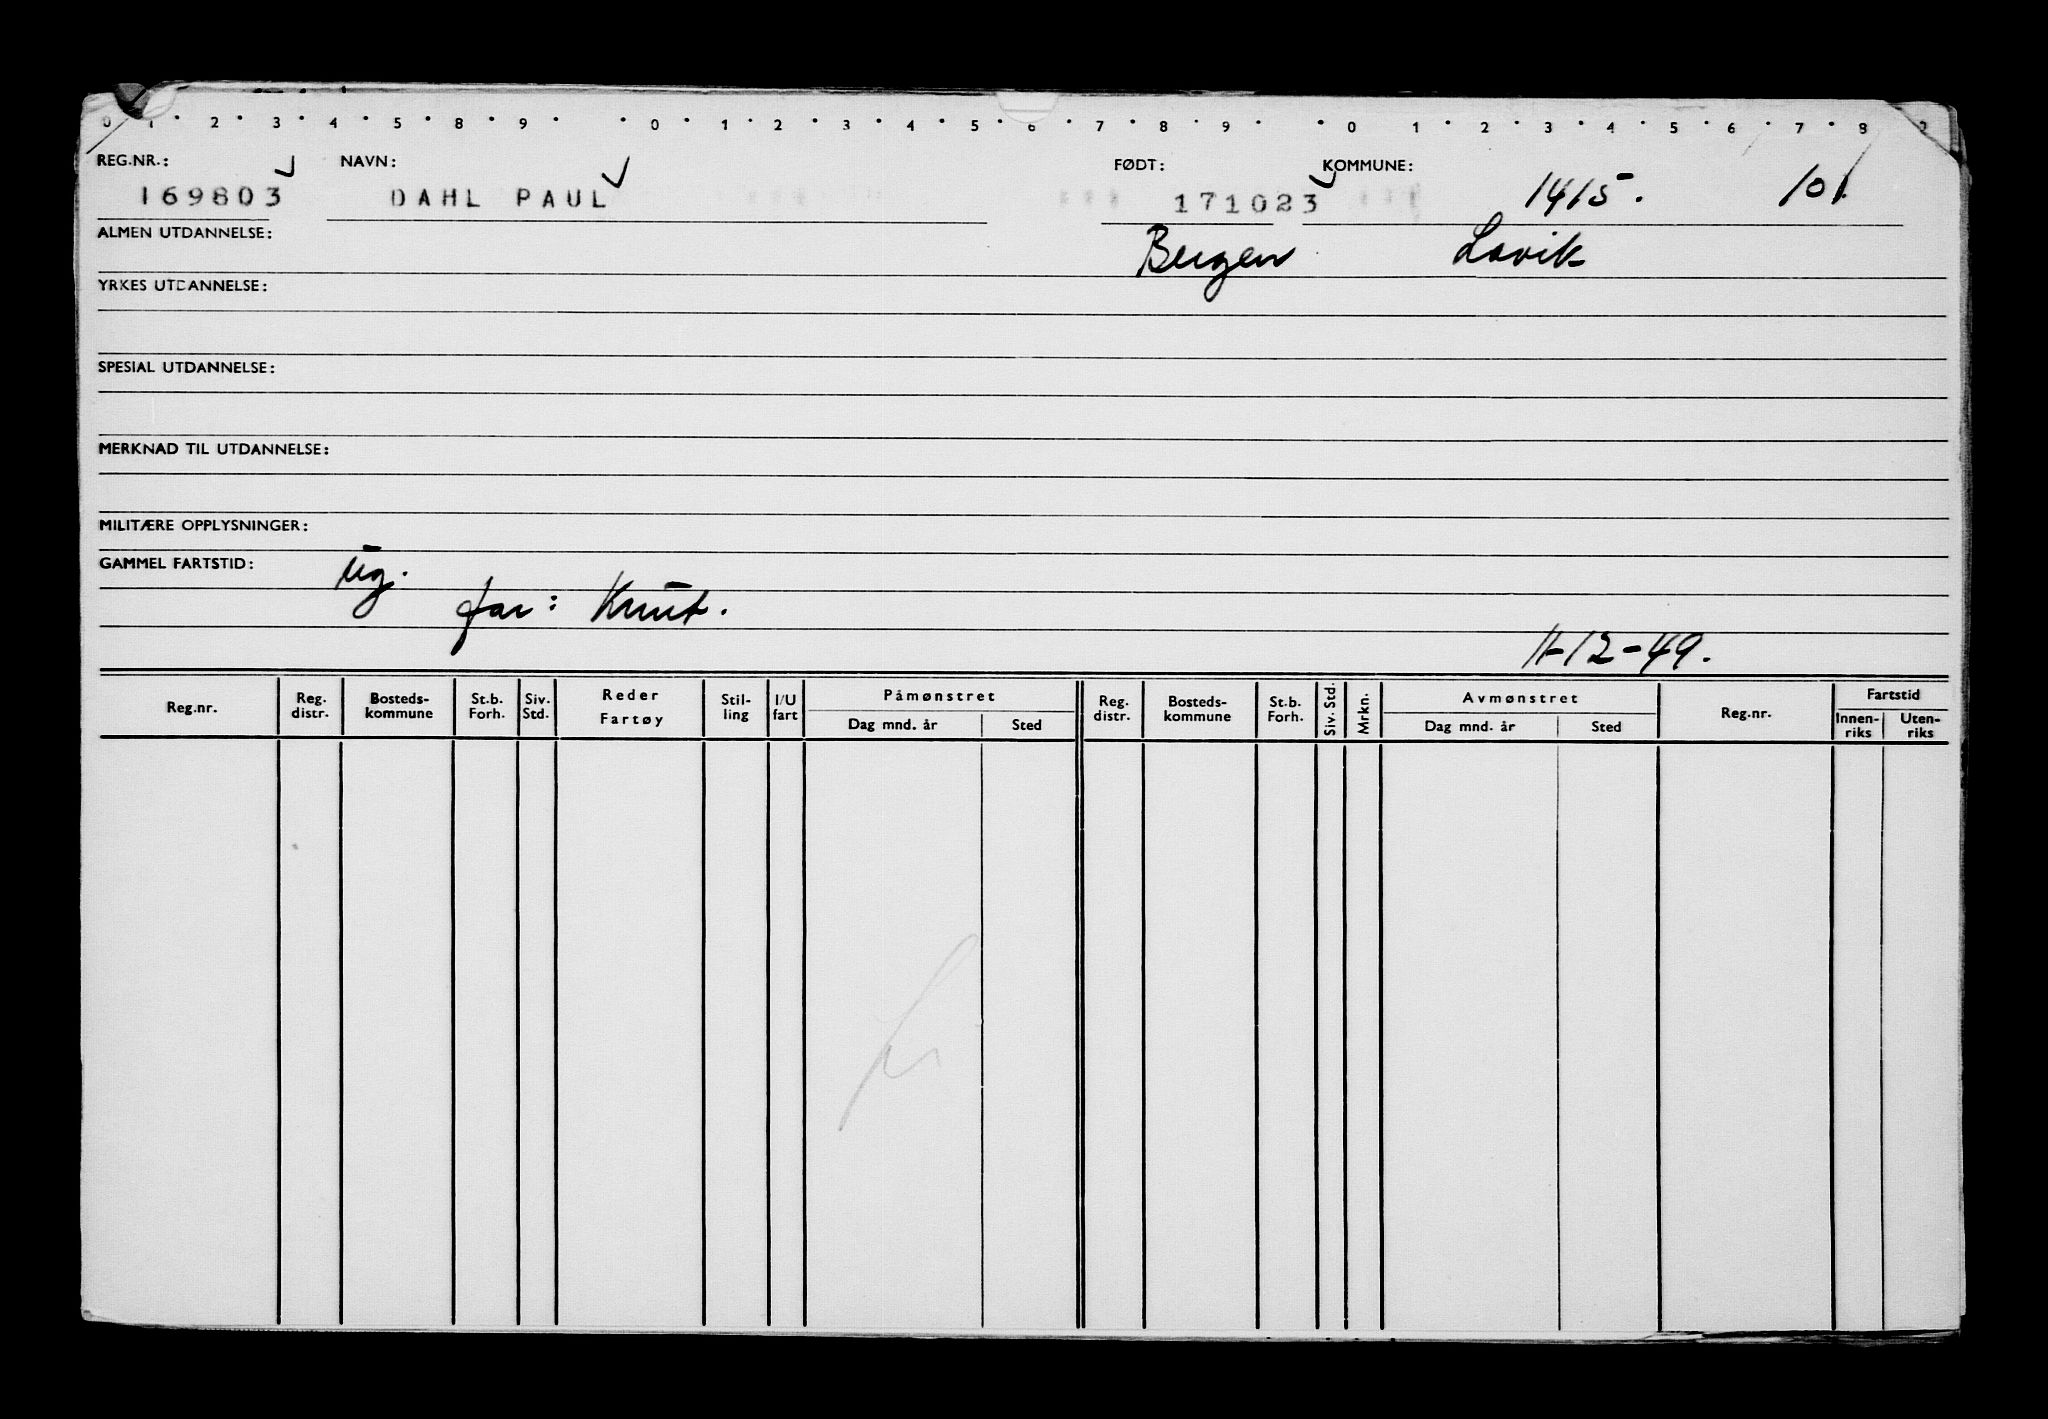 0 1 2 3 4 5 8 9 0 1 2 3 4 5 6 7 8 9 0 1 2 3 4 5 6 7 8 9
REG.NR.: NAVN: FØDT: KOMMUNE:
169803 DAHL PAUL 171023 1415. 101
ALMEN UTDANNELSE: Bergen Lavik
YRKES UTDANNELSE:
SPESIAL UTDANNELSE:
MERKNAD TIL UTDANNELSE:
MILITÆRE OPPLYSNINGER:
GAMMEL FARTSTID: ug.
far: Knut.
11-12-49.
Reg.nr. Reg. distr. Bosteds- kommune St.b. Forh. Siv. Std. Reder Fartøy Stil- ling I/U fart Påmønstret Dag mnd. år Sted Reg. distr. Bosteds- kommune St.b. Forh. Siv. Std. Mrkn. Avmønstret Dag mnd. år Sted Reg.nr. Fartstid Innen- riks Uten- riks